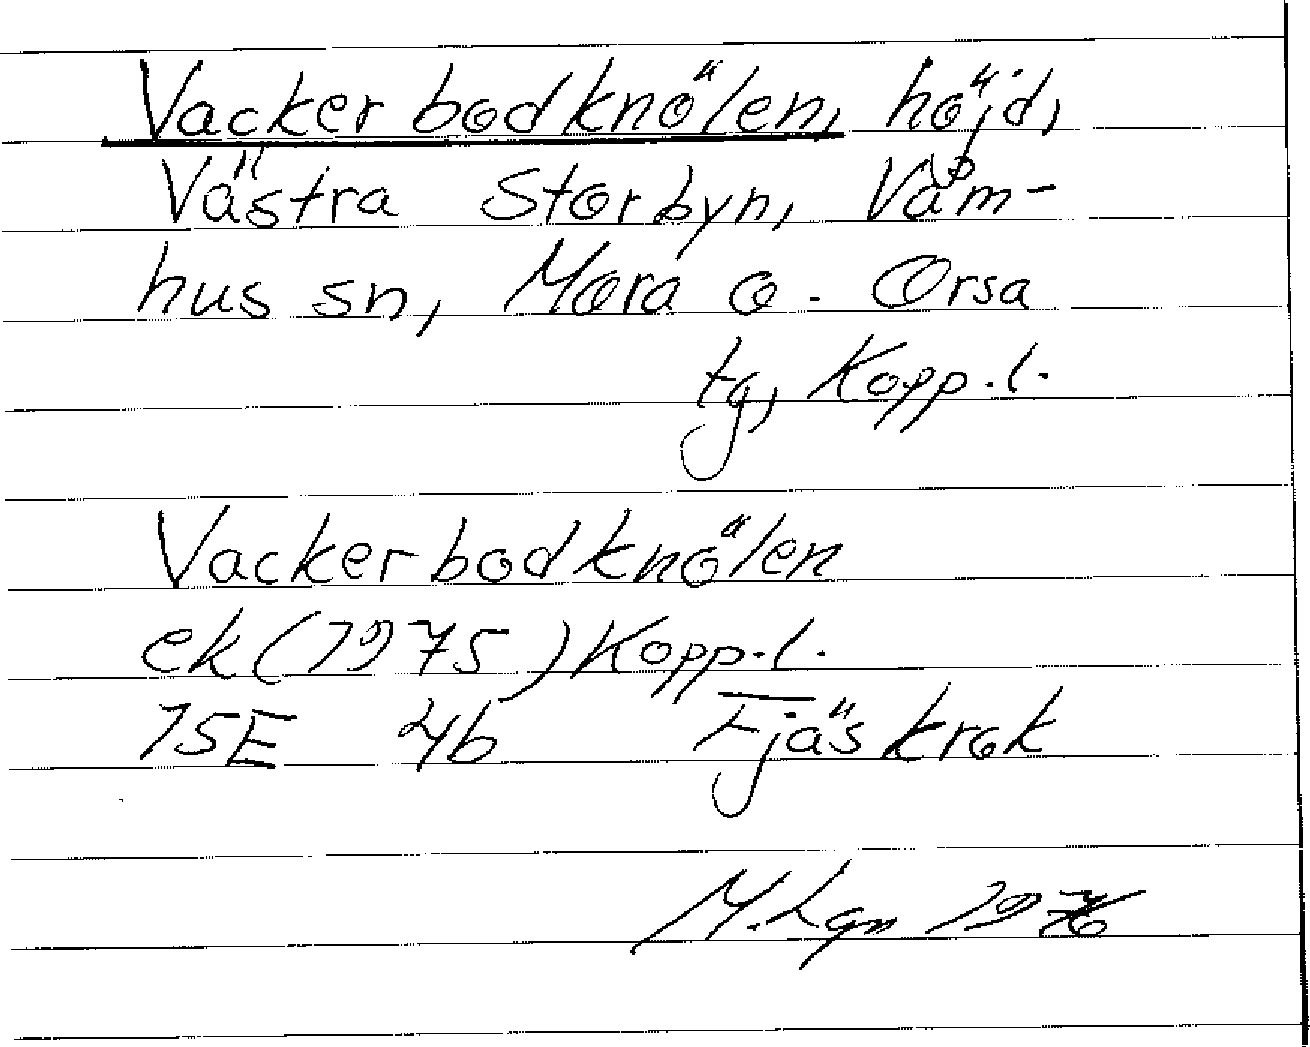 Vackerbodknölen, höjd,
Västra Storbyn, Våm-
hus sn, Mora o. Orsa
tg, Kopp.l.
Vackerbodknölen
ek(1975)Kopp.l.
15E 4b Fjäskrok
M. Lgn 1976